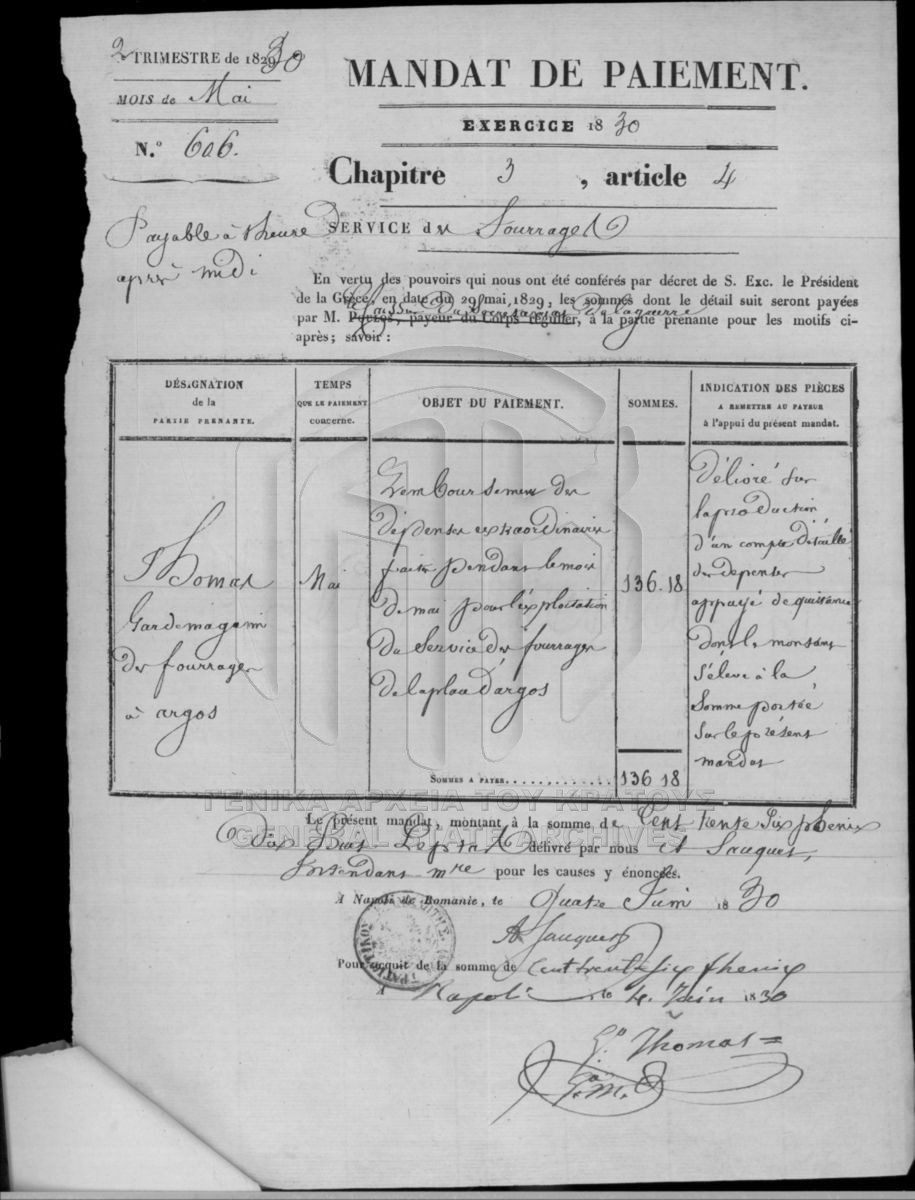 2 TRIMESTRE de 182930
MOIS de Mai
N.º 606.
MANDAT DE PAIEMENT.
EXERCICE 1830
Chapitre 3, article 4
Payable à
après midi
SERVICE des Fourrages
En vertu des pouvoirs qui nous ont été conférés par décret de S. Exc. le Président
de la Grèce, en date du 29 mai, 1829, les sommes dont le détail suit seront payées
la caisse du Secrétariat de la guerre
par M. payeur du Corps régulier, à la partie prenante pour les motifs ci-
après; savoir:
DÉSIGNATION
de la
PARTIE PRENANTE.
TEMPS
QUE LE PAIEMENT
concerne.
OBJET DU PAIEMENT.
SOMMES.
INDICATION DES PIÈCES
A REMETTRE AU PAYEUR
à l'appui du présent mandat.
Thomas
Garde magasin
des fourrages
à argos
Mai
Remboursement des
dépenses extraordinaires
faites pendant le mois
de mai pour l'exploitation
du Service des fourrages
de la place d'argos
136.18
Délivré sur
la production
d'un compte détaillé
des depenses
appuyé de quittance
dont le montant
s'éleve à la
Somme portée
sur le présent
mandat
SOMMES A PAYER............. 136 18
ΓΕΝΙΚΑ ΑΡΧΕΙΑ ΤΟΥ ΚΡΑΤΟΥΣ
GENERAL STATE ARCHIVES
Le présent mandat, montant à la somme de Cent trente Six phenix
Dix huit Lepta délivré par nous
Intendant mre pour les causes y énoncées.
A Napoli de Romanie, le Quatre Juin 1830
Pour acquit de la somme de Cent trente six phenix
A Napoli le 4. Juin 1830
Thomas
G.M.